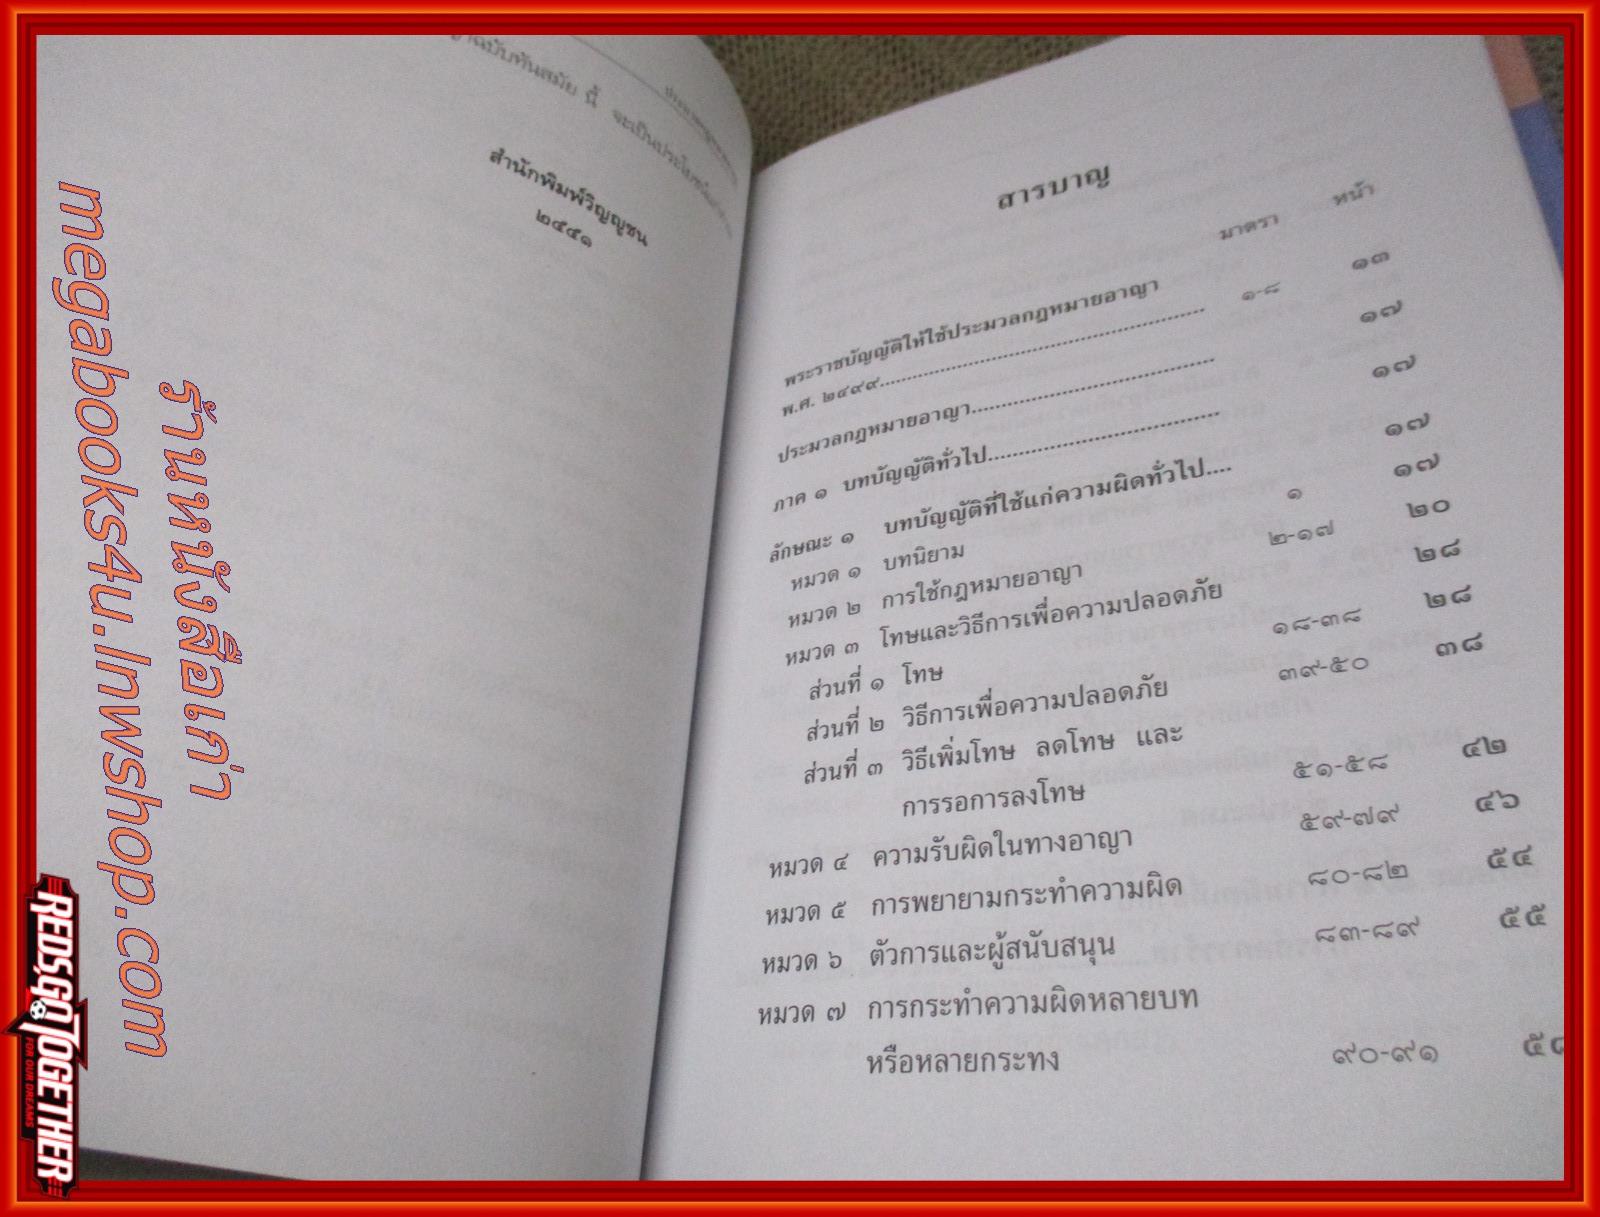 ฉบับทันสมัย นี้ จะเป็นประโยชน์
สำนักพิมพ์วิญญูชน
๒๕๕๑
สารบาญ
มาตรา หน้า
พระราชบัญญัติให้ใช้ประมวลกฎหมายอาญา
พ.ศ. ๒๔๙๙.................................................... ๑-๘ ๑๓
ประมวลกฎหมายอาญา....................................... ๑๗
ภาค ๑ บทบัญญัติทั่วไป..................................... ๑๗
ลักษณะ ๑ บทบัญญัติที่ใช้แก่ความผิดทั่วไป.... ๑๗
หมวด ๑ บทนิยาม ๑ ๑๗
หมวด ๒ การใช้กฎหมายอาญา ๒-๑๗ ๒๐
หมวด ๓ โทษและวิธีการเพื่อความปลอดภัย ๒๘
ส่วนที่ ๑ โทษ ๑๘-๓๘ ๒๘
ส่วนที่ ๒ วิธีการเพื่อความปลอดภัย ๓๙-๕๐ ๓๘
ส่วนที่ ๓ วิธีเพิ่มโทษ ลดโทษ และ
การรอการลงโทษ ๕๑-๕๘ ๔๒
หมวด ๔ ความรับผิดในทางอาญา ๕๙-๗๙ ๔๖
หมวด ๕ การพยายามกระทำความผิด ๘๐-๘๒ ๕๔
หมวด ๖ ตัวการและผู้สนับสนุน ๘๓-๘๙ ๕๕
หมวด ๗ การกระทำความผิดหลายบท
หรือหลายกระทง ๙๐-๙๑ ๕๘
ร้านหนังสือเก่า
megabooks4u.lnwshop.com
REDS.GO TOGETHER
FOR OUR DREAMS